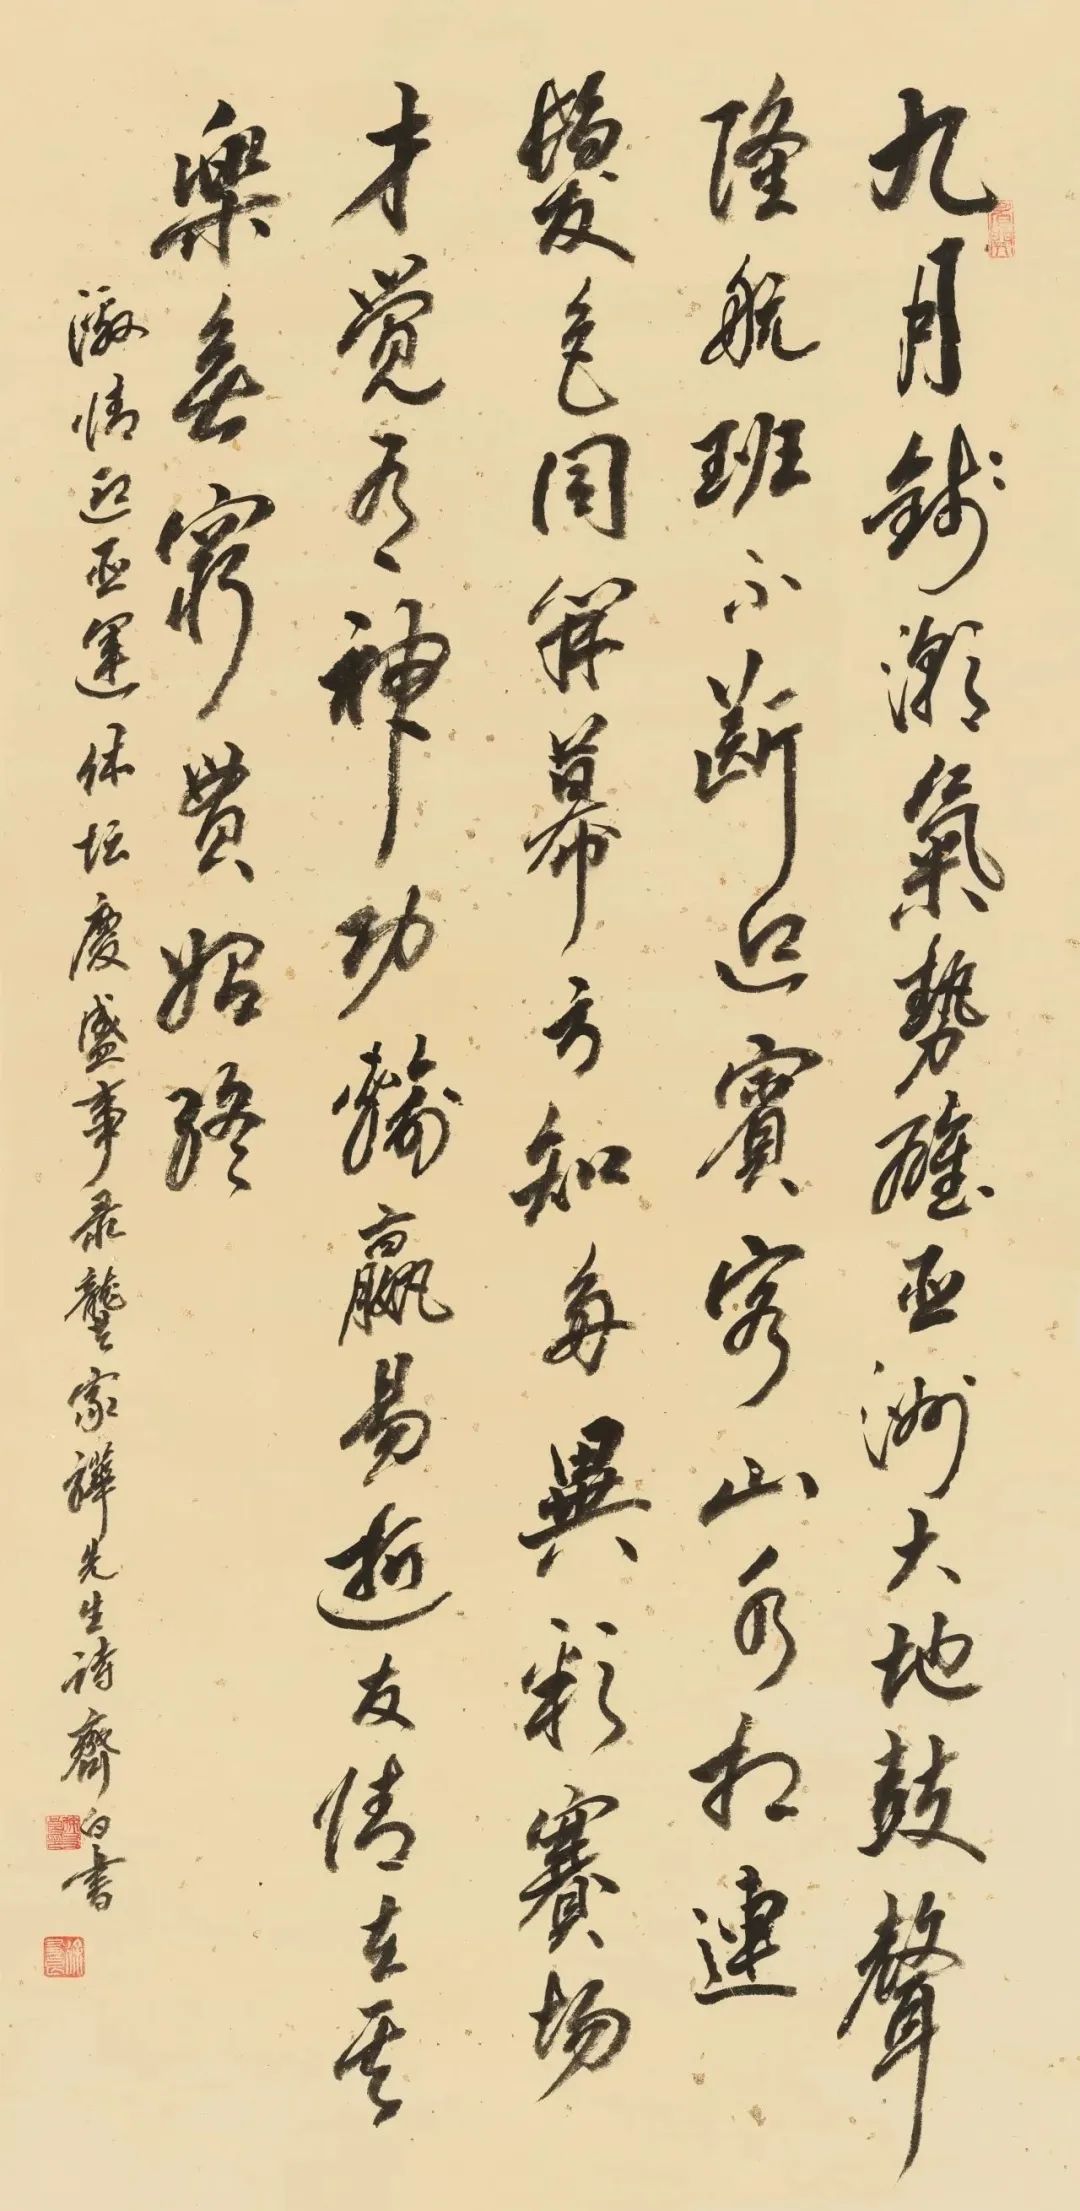 九月錢潮氣勢雄亞洲大地鼓聲
隆航班不断迎賓客山水相連
髮色同開幕方知多異彩賽場
才覺有神功輸贏易逝友情在其
樂無窮貫始終
激情迎亞運体坛慶盛事录龔家先生詩齊白書